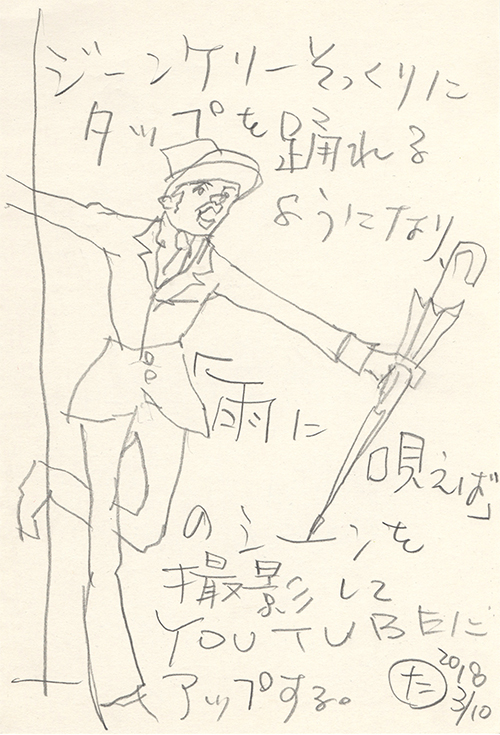 ジーンケリーそっくりに
タップを踊れる
ようになり、
「雨に
唄えば」
のシーンを
撮影して
YOUTUBEに
アップする。
た
2018
3/10